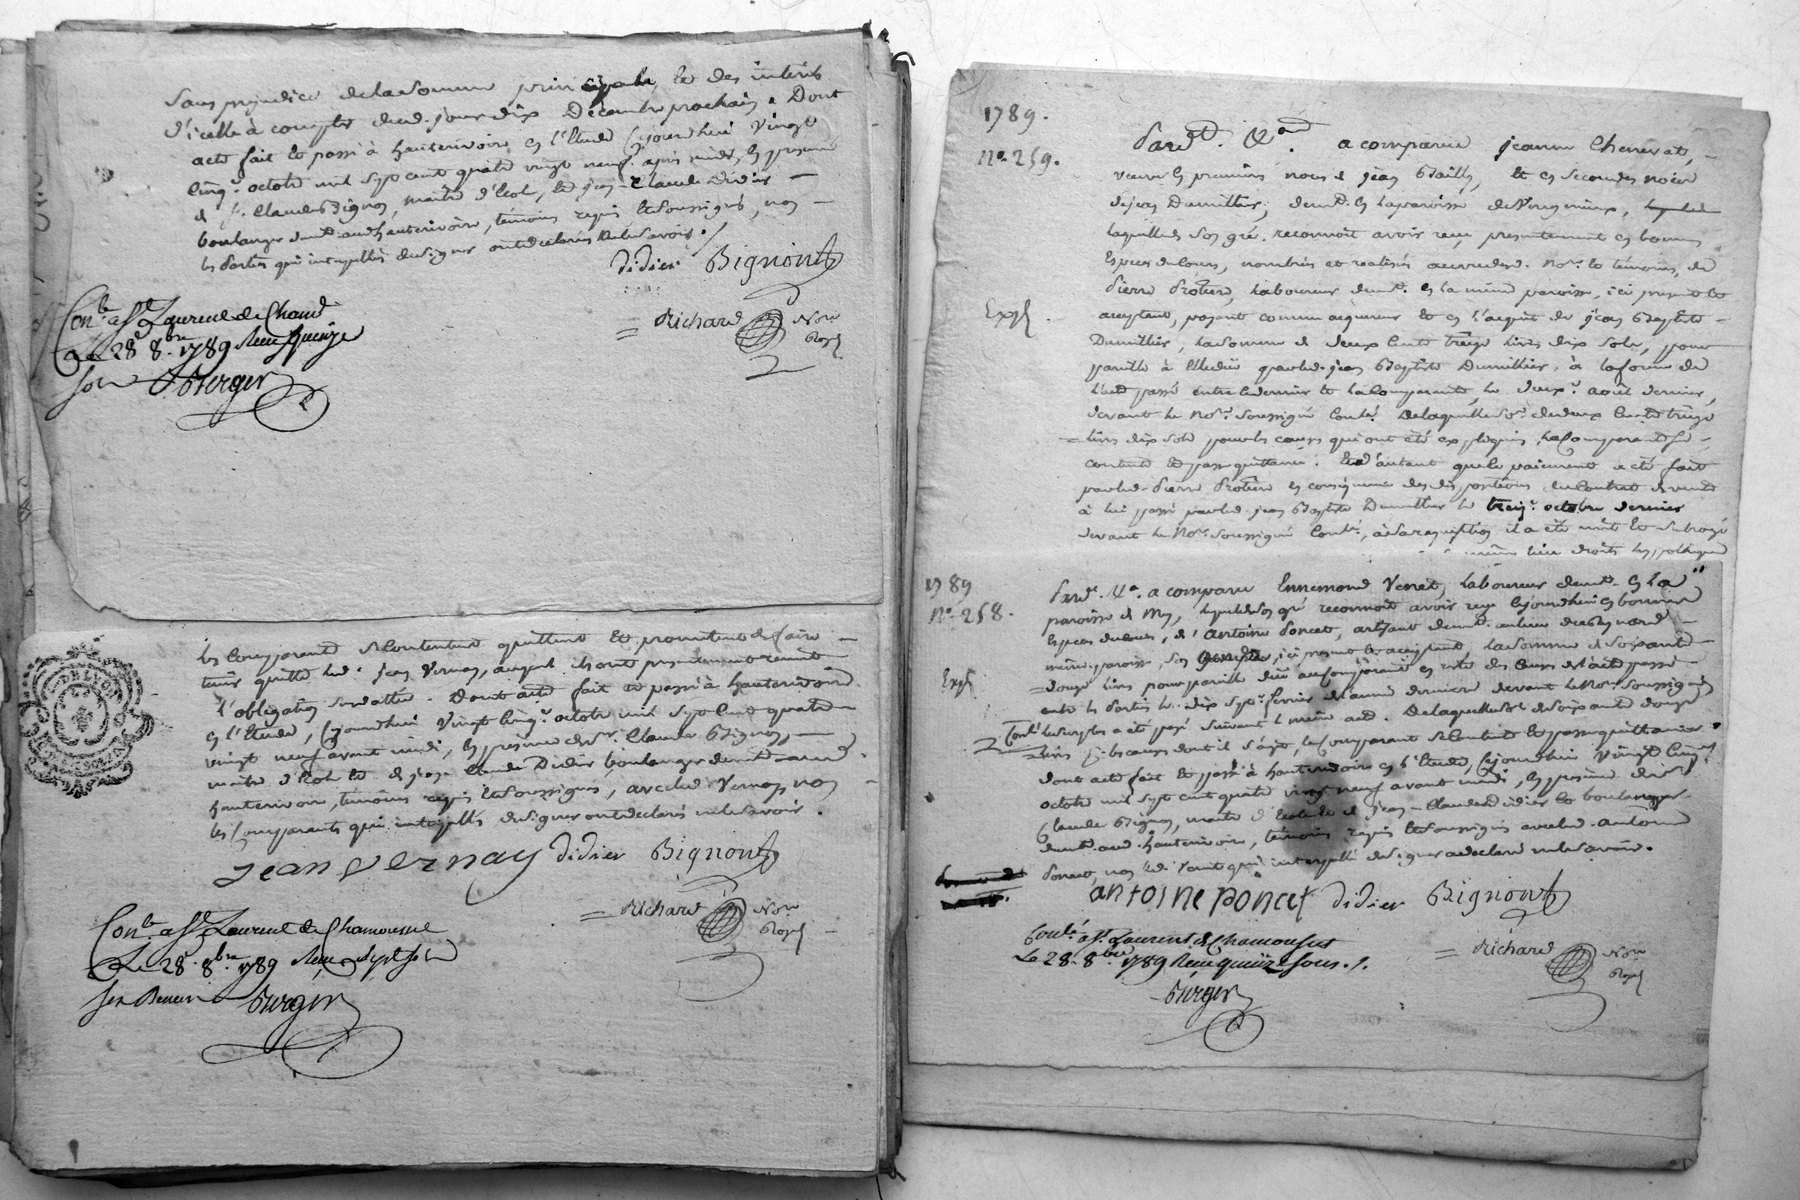 Sans préjudice de la somme principale et des intérêts
d'icelle à compter dud. jour dix Décembre prochain. Dont
acte fait et passé à hauterivoire en l'Etude cejourdhui vingt
cinq.e octobre mil sept cent quatre vingt neuf après midi, en presence
de Sr. Claude Bignon, maitre d'Ecole, et jean-Claude Didier
boulanger demt. aud. hauterivoire, témoins requis et soussignés, non
les parties qui interpellés de signer ont déclaré ne le savoir.
didier Bignon
Richard Nore
Royal
Con.lé a St Laurent de Cham.
Le 28 8.bre 1789 Reçu quinze
sols Berger
les comparants se contentent quittent et promettent de faire
tenir quitte led. jean Vernay, auquel ils ont presentement remis
l'obligation sus datée. Dont acte fait et passé à hauterivoire
en l'Etude, cejourdhui vingt cinq.e octobre mil sept cent quatre
vingt neuf avant midi, en presence de Sr. Claude Bignon,
maitre d'Ecole et de jean Claude Didier boulanger demt. aud.
hauterivoire, témoins requis et soussignés, avec led. Vernay, non
les comparants qui interpellés de signer ont déclaré ne le savoir.
jean vernay didier Bignon
Richard Nore
Royal
Con.lé a St Laurent de Chamousset
Le 28 8.bre 1789 Reçu sept sols
six deniers Berger
1789.
N.o 259.
Pard.t &.a a comparu jeanne Chenevat,
veuve en premieres noces de jean Bailly, et en secondes noces
de jean Dumillier, demt. en la paroisse de
laquelle de son gré reconnoît avoir reçu presentement en bonnes
Especes de cours, nombrées et realisés au vu desd. No.re et témoins, de
Pierre Protiere, laboureur demt. en la même paroisse, ici present et
Exp.é
acceptant, payant comme acquereur et en l'acquit de jean Baptiste
Dumillier, la somme de deux cent treize livres dix sols, pour
pareille à Elle due par led. jean Baptiste Dumillier, à la forme de
l'acte passé entre ce dernier et la comparante, le deux.e août dernier,
devant le No.re soussigné Conlé. De laquelle so.e de deux cent treize
livres dix sols pour les causes qui ont été expliquées, la comparante se
contente et passe quittance. Et d'autant que le paiement a été fait
par led. Pierre Protiere en consequence des dispositions du contrat de vente
à lui passé par led. jean Baptiste Dumillier le treiz.e octobre dernier
devant le No.re soussigné Conlé, à sa requisition il a été mis et subrogé
lieu droits hypotheques
1789
N.o 258.
Pard.t &.a a comparu Ennemond Venet, laboureur demt. en la
paroisse de Mey, lequel de son gré reconnoît avoir reçu cejourdhui en bonnes
Especes de cours, de antoine poncet, artisan demt. au lieu de
même paroisse, ici present et acceptant, la somme de soixante
Exp.é
douze livres pour pareille due au comparant en vertu des causes de l'acte passé
entre les parties le dix sept.e fevrier de l'année derniere devant le No.re soussigné
Conlé le surplus a été payé suivant le même acte. De laquelle so.e de soixante douze
livres p.r les causes dont il s'agit, le comparant se contente et passe quittance.
dont acte fait et passé à hauterivoire en l'Etude, cejourdhui vingt cinq.e
octobre mil sept cent quatre vingt neuf avant midi, en presence de Sr.
Claude Bignon, maitre d'Ecole et de jean-Claude Didier boulanger
demt. aud. hauterivoire, témoins requis et soussignés avec led. antoine
poncet, non led. Venet qui interpellé de signer a déclaré ne le savoir.
antoine poncet didier Bignon
Richard Nore
Royal
Conlé a St. Laurent de Chamousset
Le 28. 8bre 1789 Reçu quinze sous. /.
Berger